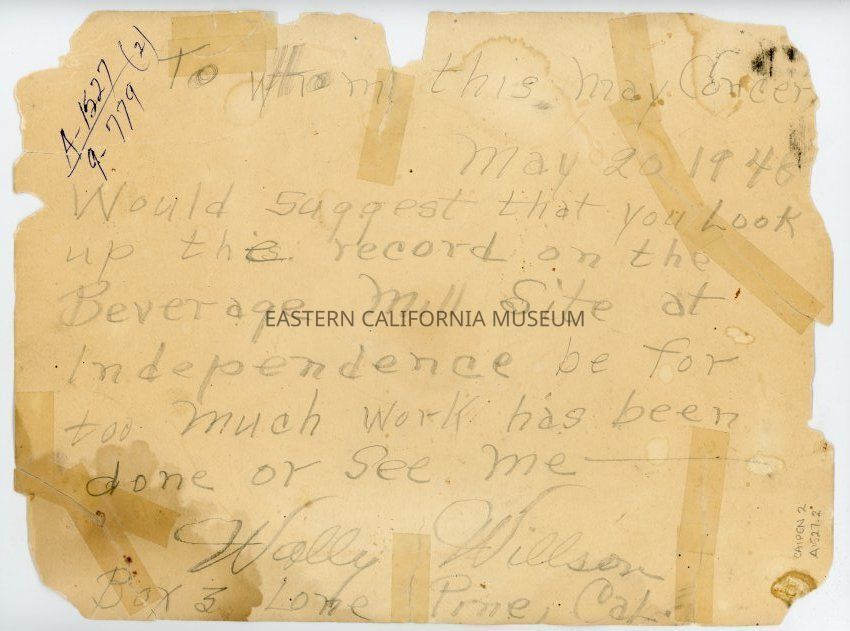 A-1527 (2)
9-779
To Whom this May Concern
May 20 1946
Would suggest that you Look
up the record on the
Beverage Mill Site at
EASTERN CALIFORNIA MUSEUM
Independence be for
too much work has been
done or See me—
Wally Willson
Box 3 Lone Pine, Cal.
CAIPEN 2
A1527.2